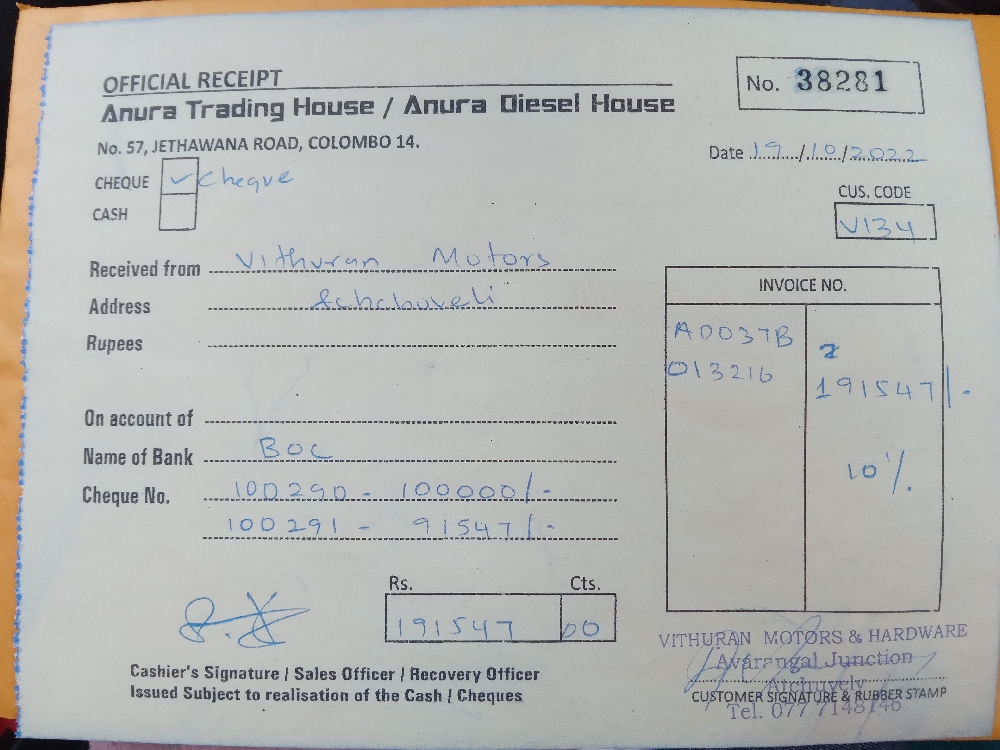 OFFICIAL RECEIPT
Anura Trading House / Anura Diesel House
No. 38281
No. 57, JETHAWANA ROAD, COLOMBO 14.
Date 19/10/2022
CHEQUE ✓ Cheque
CASH
CUS. CODE
V134
Received from Vithuran Motors
Address
Rupees
INVOICE NO.
A0037B
013216
191547/-
10%
On account of
Name of Bank BOC
Cheque No. 100290 - 100000/-
100291 - 91547/-
Rs. Cts.
191547 00
Cashier's Signature / Sales Officer / Recovery Officer
Issued Subject to realisation of the Cash / Cheques
VITHURAN MOTORS & HARDWARE
Avarangal Junction
Atchuvely
CUSTOMER SIGNATURE & RUBBER STAMP
Tel. 077 7148146